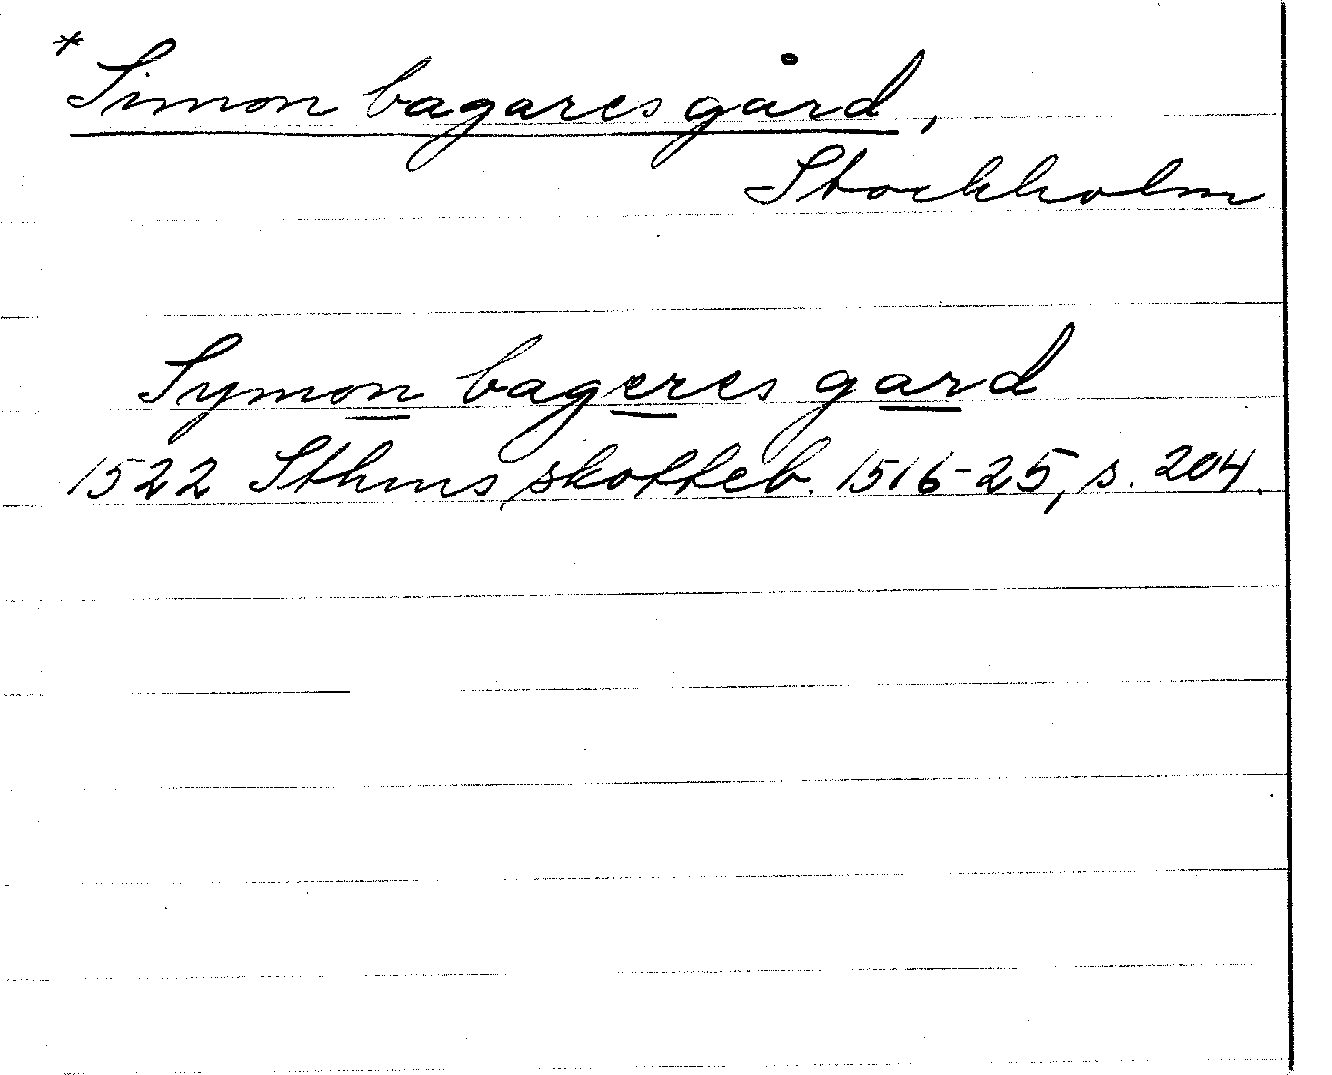 *Simon bagares gård,
Stockholm
Symon bageres gard
1522 Sthms skotteb. 1516-25, s. 204.